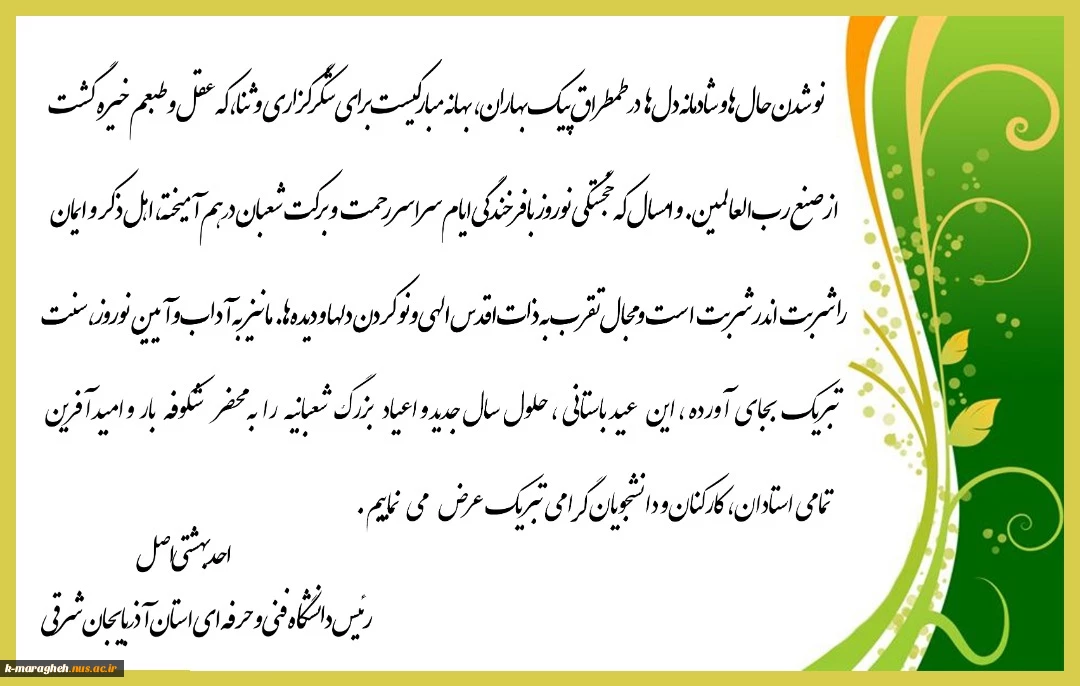 نو شدن حال ها و شادمانه دل ها در طمطراق پیک بهاران، بهانه مبارکیست برای شکرگزاری و ثنا، که عقل و طبعم خیره گشت
از صنع رب العالمین. و امسال که خجستگی نوروز با فرخندگی ایام سراسر رحمت و برکت شعبان در هم آمیخته، اهل ذکر و ایمان
را شربت اندر شربت است و مجال تقرب به ذات اقدس الهی و نو کردن دلها و دیده ها. ما نیز به آداب و آیین نوروز، سنت
تبریک بجای آورده ، این عید باستانی ، حلول سال جدید و اعیاد بزرگ شعبانیه را به محضر شکوفه بار و امید آفرین
تمامی استادان، کارکنان و دانشجویان گرامی تبریک عرض می نماییم .
احد بهشتی اصل
رئیس دانشگاه فنی و حرفه ای استان آذربایجان شرقی
k-maragheh.nus.ac.ir